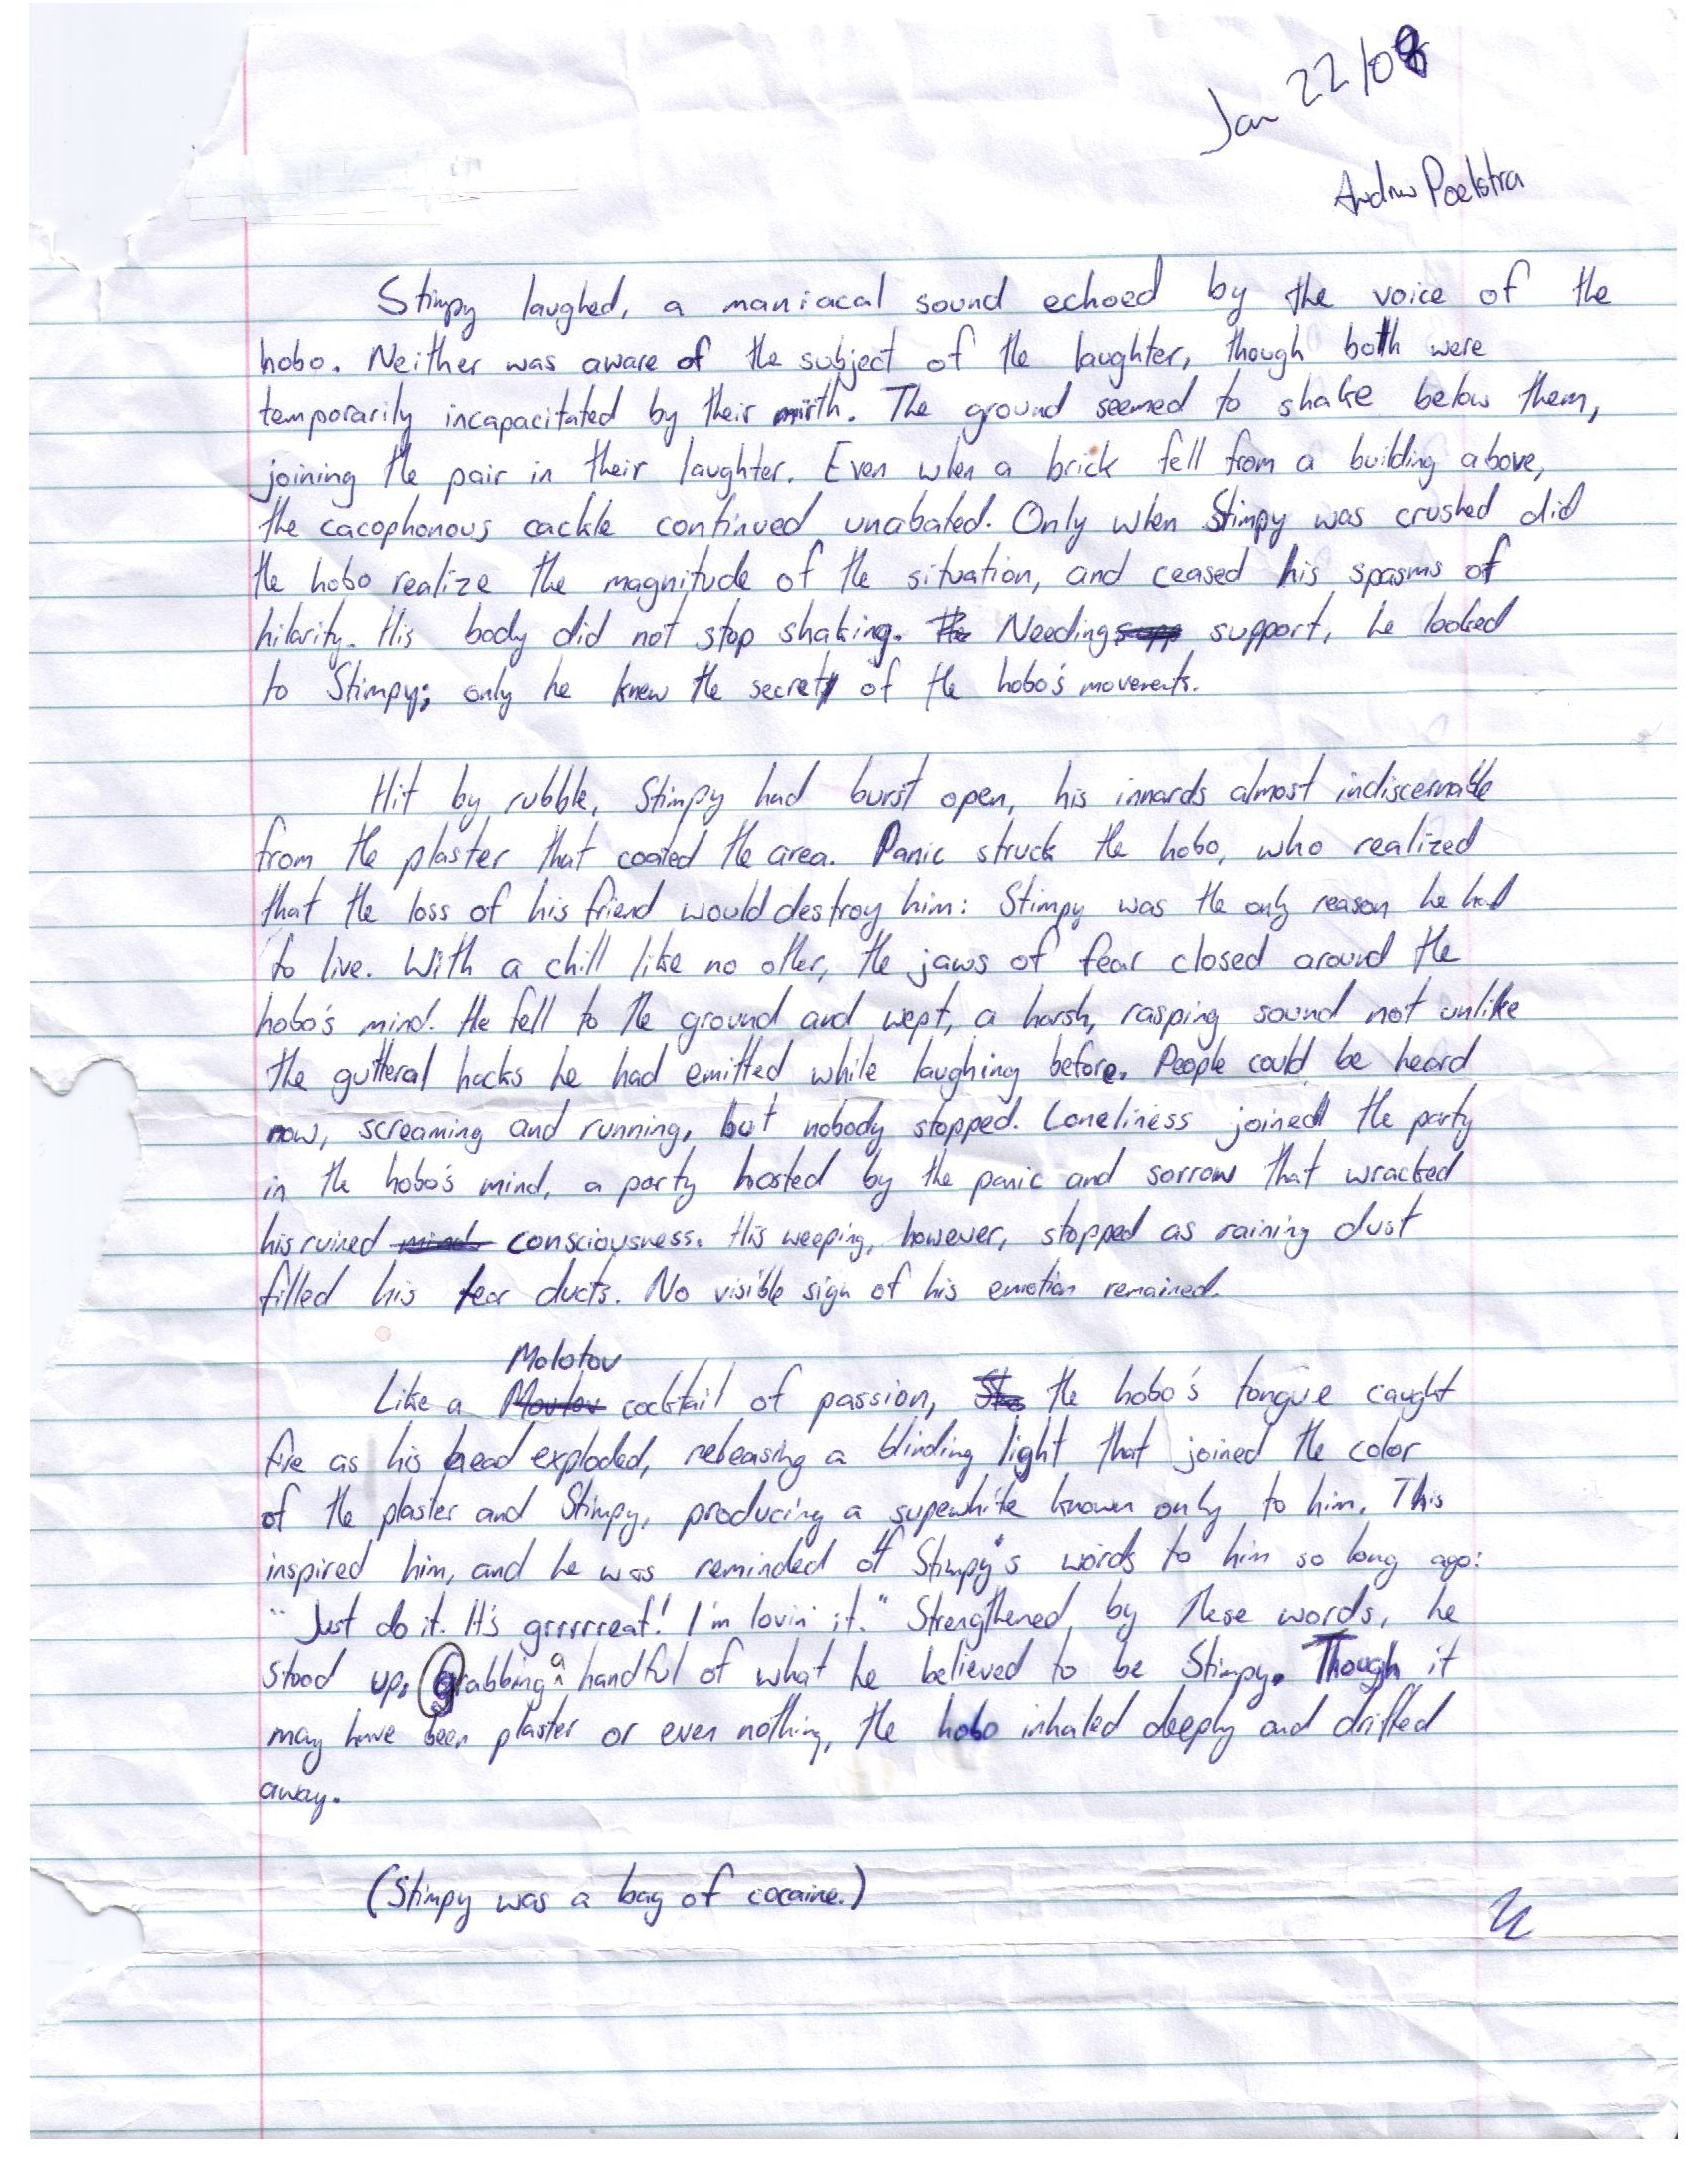 Jan 22/08
Andrew Poelstra
Stimpy laughed, a maniacal sound echoed by the voice of the
hobo. Neither was aware of the subject of the laughter, though both were
temporarily incapacitated by their mirth. The ground seemed to shake below them,
joining the pair in their laughter. Even when a brick fell from a building above,
the cacophonous cackle continued unabated. Only when Stimpy was crushed did
the hobo realize the magnitude of the situation, and ceased his spasms of
hilarity. His body did not stop shaking. The Needing supp support, he looked
to Stimpy; only he knew the secret of the hobo's movements.
Hit by rubble, Stimpy had burst open, his innards almost indiscernable
from the plaster that coated the area. Panic struck the hobo, who realized
that the loss of his friend would destroy him: Stimpy was the only reason he had
to live. With a chill like no other, the jaws of fear closed around the
hobo's mind. He fell to the ground and wept, a harsh, rasping sound not unlike
the gutteral hacks he had emitted while laughing before. People could be heard
now, screaming and running, but nobody stopped. Loneliness joined the party
in the hobo's mind, a party hosted by the panic and sorrow that wracked
his ruined mind consciousness. His weeping, however, stopped as raining dust
filled his tear ducts. No visible sign of his emotion remained.
Molotov
Like a cocktail of passion, the hobo's tongue caught
fire as his head exploded, releasing a blinding light that joined the color
of the plaster and Stimpy, producing a superwhite known only to him. This
inspired him, and he was reminded of Stimpy's words to him so long ago:
"Just do it. It's grrrrreat! I'm lovin' it." Strengthened by these words, he
stood up, grabbing a handful of what he believed to be Stimpy. Though it
may have been plaster or even nothing, the hobo inhaled deeply and drifted
away.
(Stimpy was a bag of cocaine.)